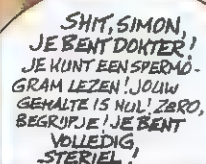 SHIT, SIMON,
JE BENT DOKTER!
JE KUNT EEN SPERMO-
GRAM LEZEN! JOUW
GEHALTE IS NUL! ZERO,
BEGRIJP JE! JE BENT
VOLLEDIG
STERIEL!